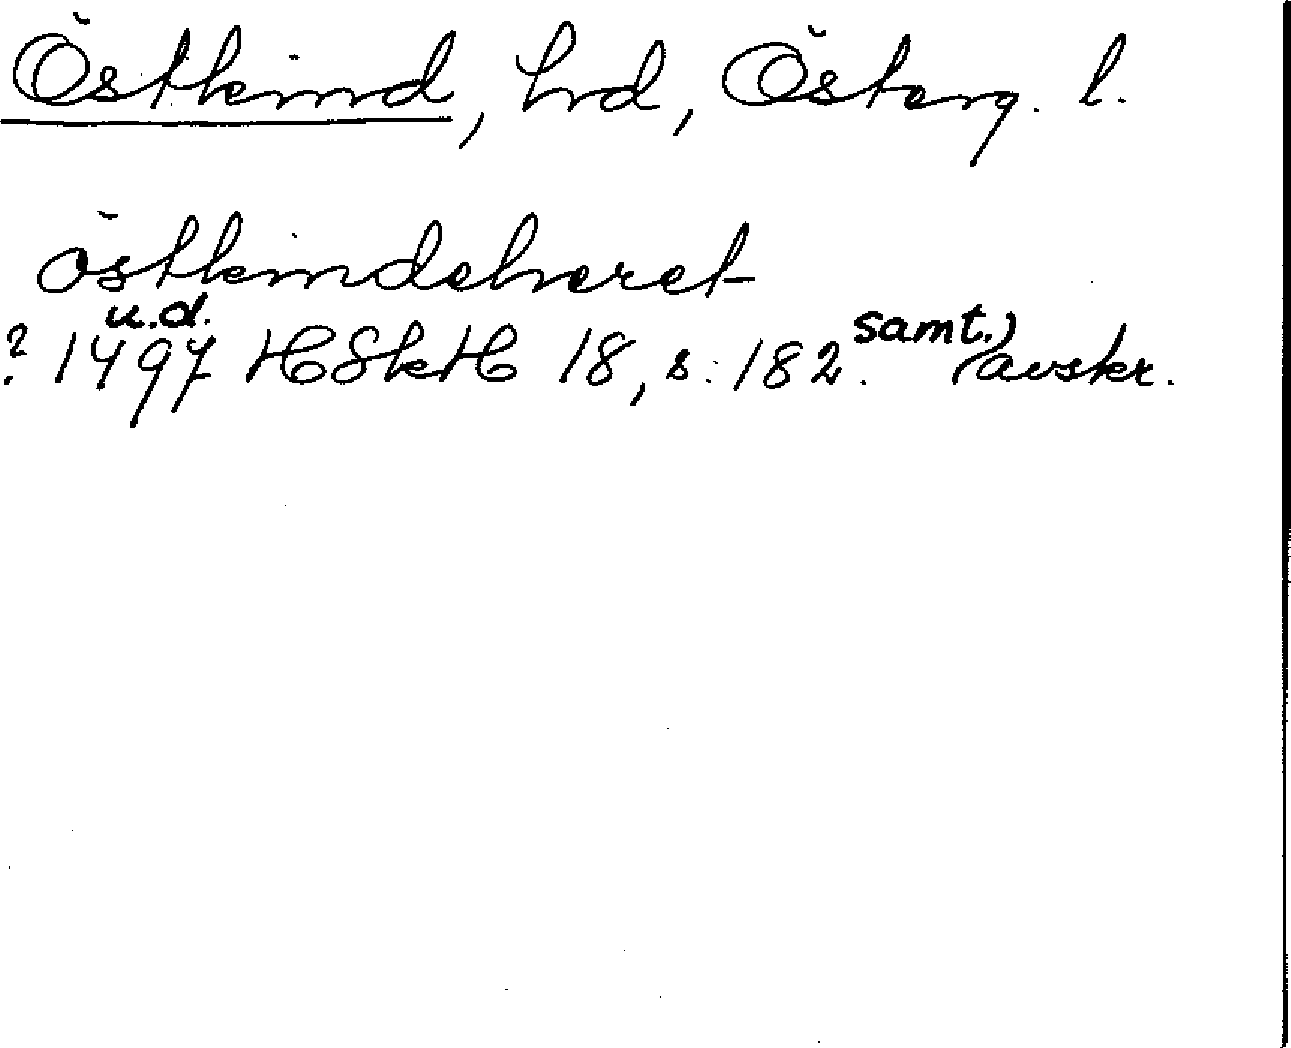 Östkind, hd, Österg. l.
östkindeheret
u.d. samt.)
? 1497 HSkH 18, s. 182. (avskr.